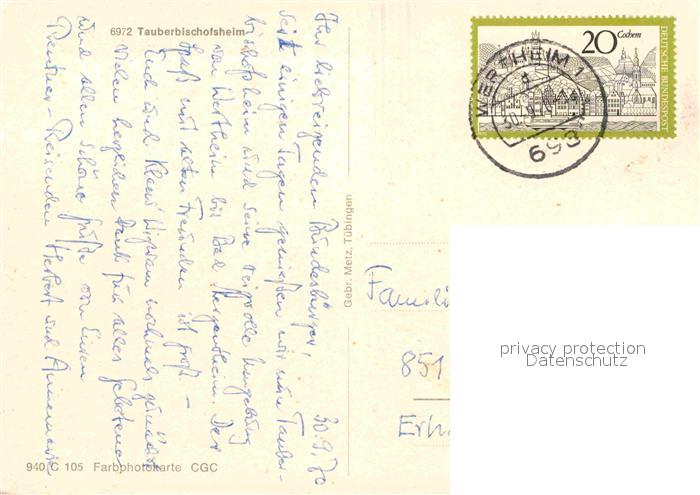 6972 Tauberbischofsheim
30.9.70
Ihr liebreizenden Bundesbürger!
Seit einigen Tagen genießen wir nun Tauber-
bischofsheim und seine reizvolle Umgebung
von Wertheim bis Bad Mergentheim. Der
Spaß mit alten Freunden ist groß. –
Euch und Klaus nochmals
vielen herzlichen Dank für alles Gebotene
und allen schöne Grüße von Euren
Rentner-Reisenden Herbert und Annemarie
Gebr. Metz, Tübingen
940 C 105 Farbphotokarte CGC
20 Cochem
DEUTSCHE BUNDESPOST
WERTHEIM 1
30.
698
Famili
851
privacy protection
Datenschutz